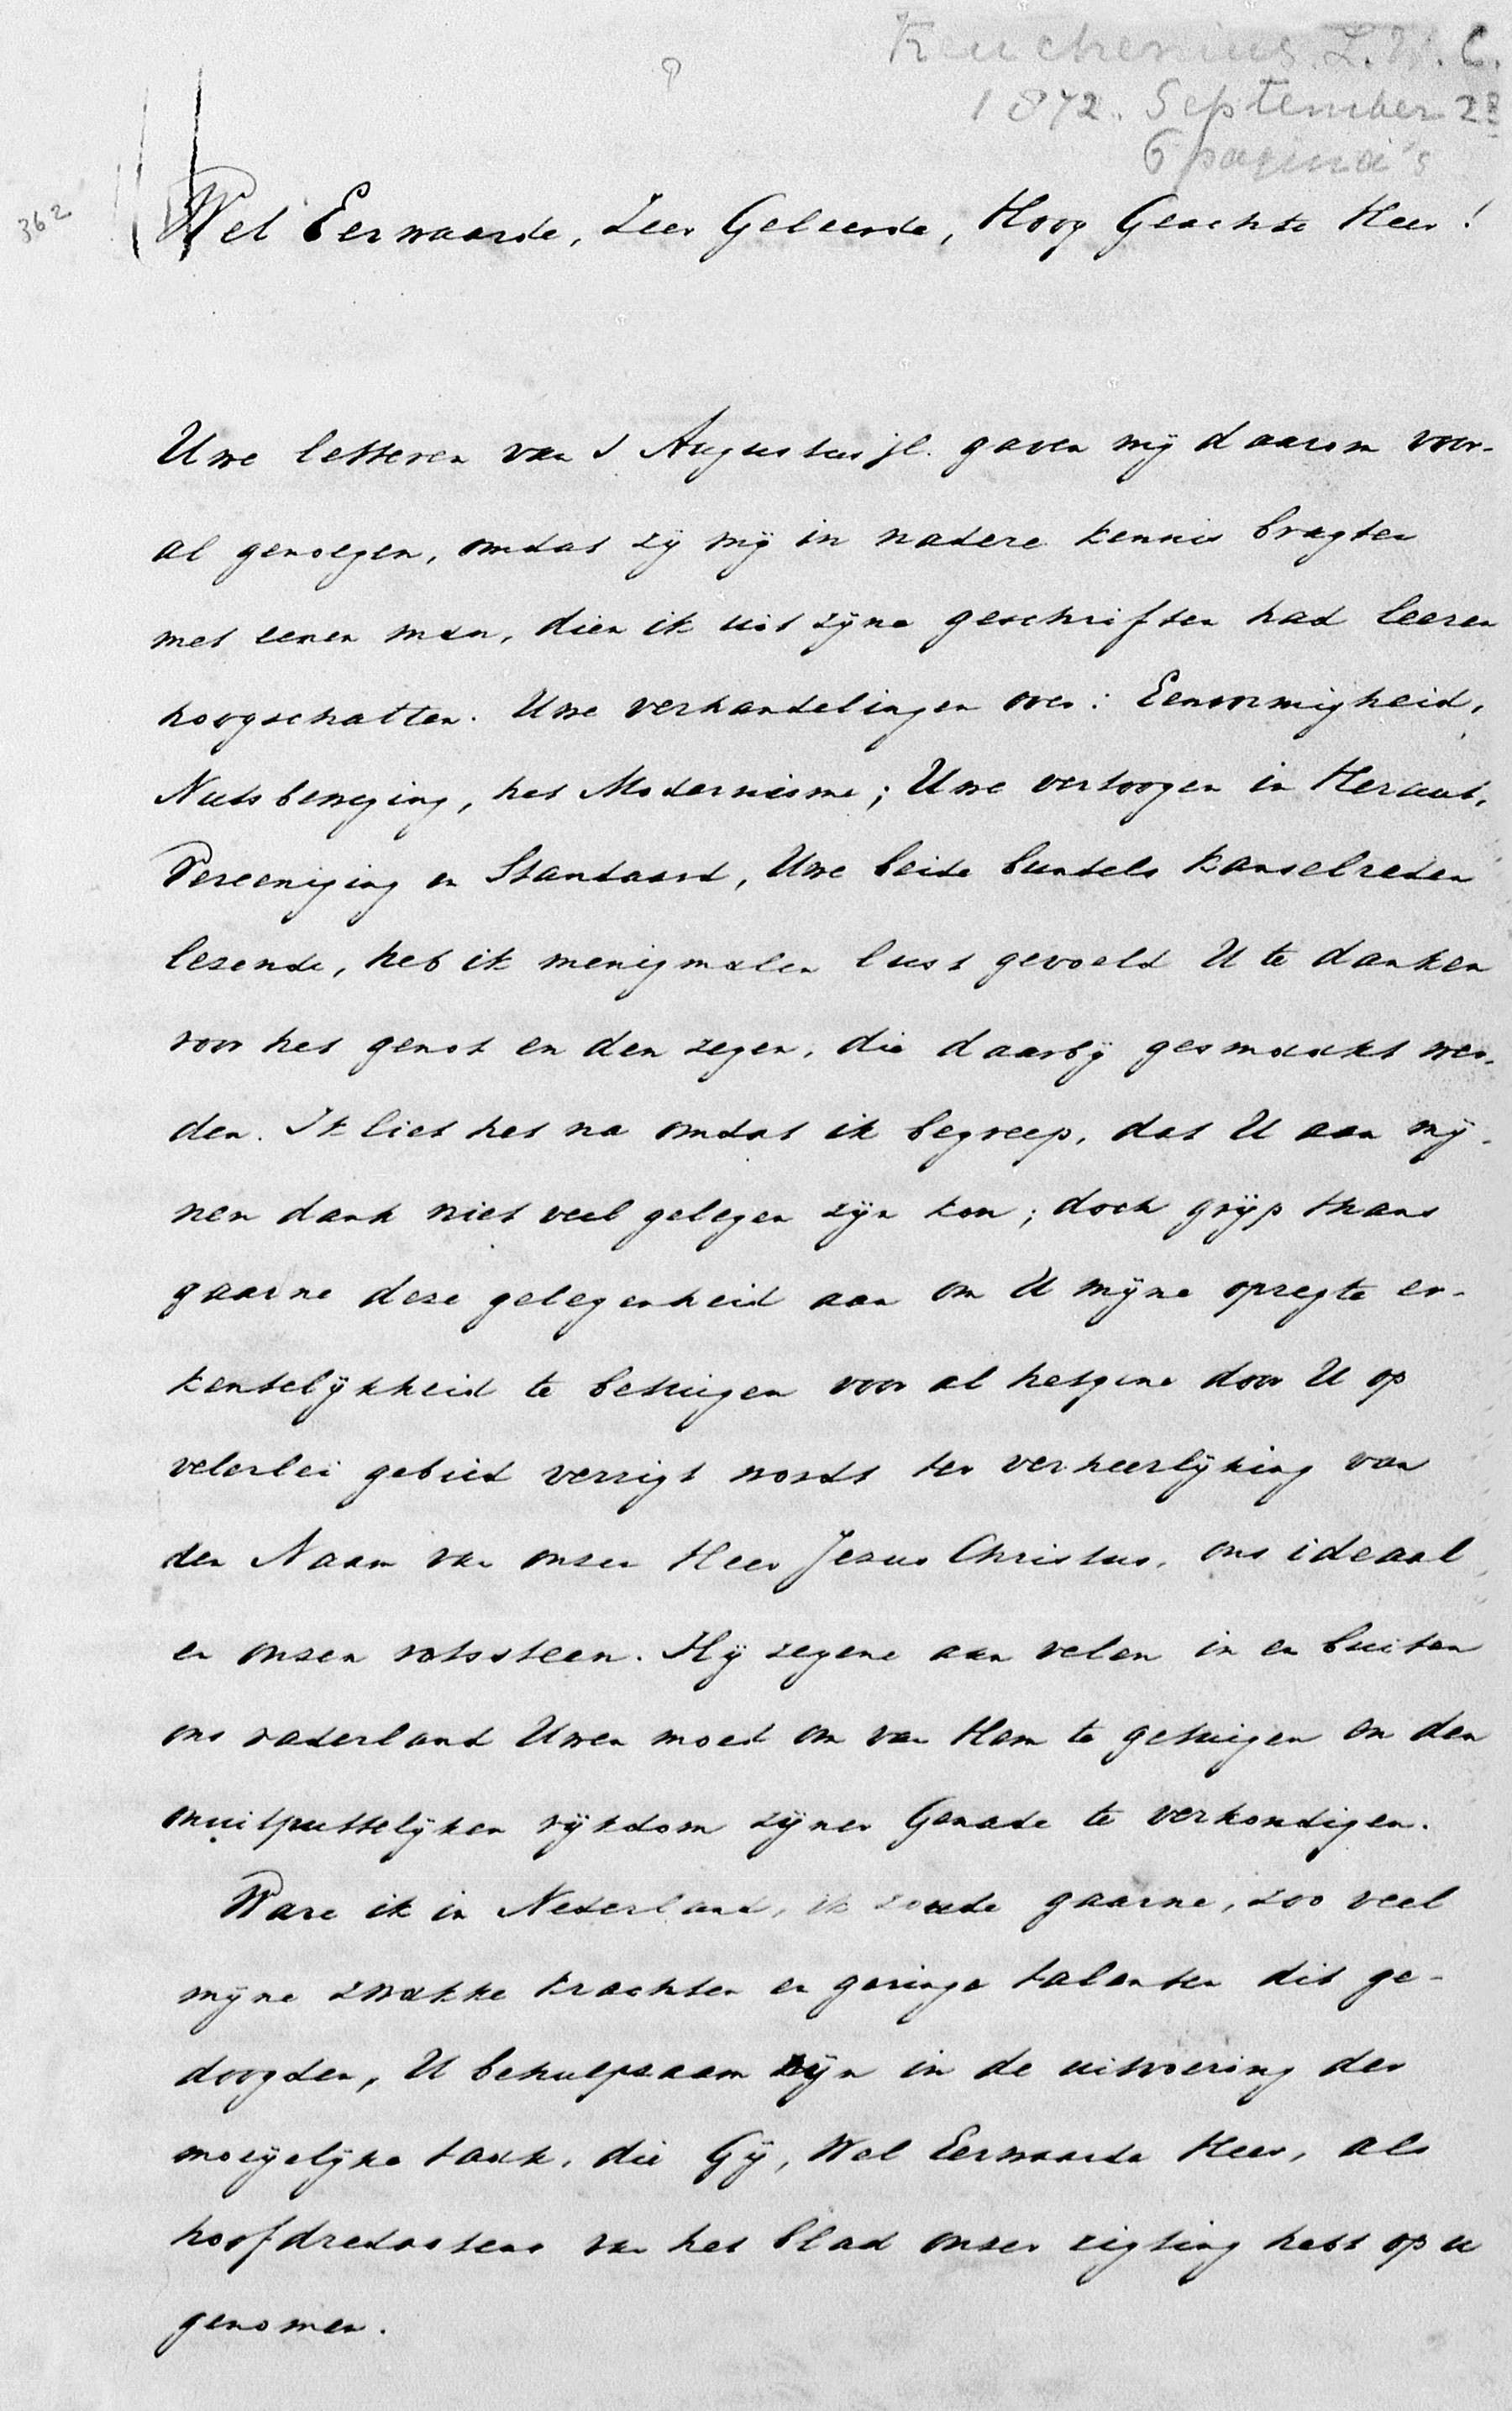 Keuchenius. L.W.C.
1872. September 28
6 pagina's
362
Wel Eerwaarde, Zeer Geleerde, Hoog Geachte Heer!
Uwe letteren van 1 Augustus jl. gaven mij daarom voor-
al genoegen, omdat zij mij in nadere kennis bragten
met eenen man, dien ik uit zijne geschriften had leeren
hoogschatten. Uwe verhandelingen over: Eenvormigheid,
Nutsbeweging, het Modernisme; Uwe vertoogen in Heraut,
Vereeniging en Standaard, Uwe beide bundels kanselreden
lezende, heb ik menigmalen lust gevoeld U te danken
voor het genot en den zegen, die daarbij gesmaakt wer-
den. Ik liet het na omdat ik begreep, dat U aan mij-
nen dank niet veel gelegen zijn kon; doch grijp thans
gaarne deze gelegenheid aan om U mijne opregte er-
kentelijkheid te betuigen voor al hetgene door U op
velerlei gebied verrigt wordt ter verheerlijking van
den Naam van onzen Heer Jezus Christus, ons ideaal
en onzen rotssteen. Hij zegene aan velen in en buiten
ons vaderland Uwen moed om van Hem te getuigen en den
onuitputtelijken rijkdom zijner Genade te verkondigen.
Ware ik in Nederland, ik zoude gaarne, zoo veel
mijne zwakke krachten en geringe talenten dit ge-
doogden, U behulpzaam zijn in de uitvoering der
moeijelijke taak, die Gij, Wel Eerwaarde Heer, als
hoofdredacteur van het blad onzer rigting hebt op u
genomen.